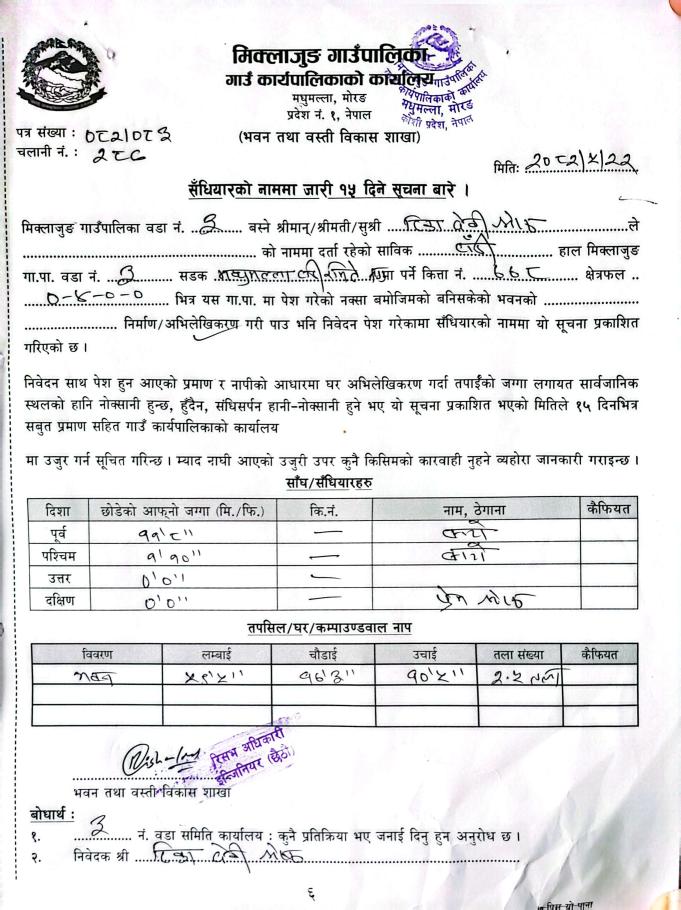 मिक्लाजुङ गाउँपालिका
गाउँ कार्यपालिकाको कार्यालय
मधुमल्ला, मोरङ
प्रदेश नं. १, नेपाल
(भवन तथा वस्ती विकास शाखा)
गाउँपालिका
कार्यपालिकाको कार्यालय
मधुमल्ला, मोरङ
कोशी प्रदेश, नेपाल
पत्र संख्या : ०८२।०८३
चलानी नं. : २८८
मितिः २०८२।५।२२
सँधियारको नाममा जारी १५ दिने सूचना बारे ।
मिक्लाजुङ गाउँपालिका वडा नं. ..३...... बस्ने श्रीमान्/श्रीमती/सुश्री ....टिका देवी श्रेष्ठ.....ले
................ को नाममा दर्ता रहेको साविक ................ हाल मिक्लाजुङ
गा.पा. वडा नं. ..३..... सडक मधुमल्ला मा पर्ने कित्ता नं. ...६६८...... क्षेत्रफल ..
..०-४-०-०.. भित्र यस गा.पा. मा पेश गरेको नक्सा बमोजिमको बनिसकेको भवनको ................
................ निर्माण/अभिलेखिकरण गरी पाउ भनि निवेदन पेश गरेकामा सँधियारको नाममा यो सूचना प्रकाशित
गरिएको छ ।
निवेदन साथ पेश हुन आएको प्रमाण र नापीको आधारमा घर अभिलेखिकरण गर्दा तपाईंको जग्गा लगायत सार्वजानिक
स्थलको हानि नोक्सानी हुन्छ, हुँदैन, संधिसर्पन हानी-नोक्सानी हुने भए यो सूचना प्रकाशित भएको मितिले १५ दिनभित्र
सबुत प्रमाण सहित गाउँ कार्यपालिकाको कार्यालय
मा उजुर गर्न सूचित गरिन्छ । म्याद नाघी आएको उजुरी उपर कुनै किसिमको कारवाही नुहने व्यहोरा जानकारी गराइन्छ ।
साँघ/सँधियारहरु
दिशा छोडेको आफ्नो जग्गा (मि./फि.) कि.नं. नाम, ठेगाना कैफियत
पूर्व ११'८" — बाटो
पश्चिम १'१०" — बाटो
उत्तर ०'०" —
दक्षिण ०'०" — प्रेम श्रेष्ठ
तपसिल/घर/कम्पाउण्डवाल नाप
विवरण लम्बाई चौडाई उचाई तला संख्या कैफियत
भवन ५९'५" १६'३" १०'५" २.५ तला
रिसभ अधिकारी
इन्जिनियर (छैठौं)
भवन तथा वस्ती विकास शाखा
बोधार्थ :
१. ..३........ नं. वडा समिति कार्यालय : कुनै प्रतिक्रिया भए जनाई दिनु हुन अनुरोध छ ।
२. निवेदक श्री ....टिका देवी श्रेष्ठ................
६